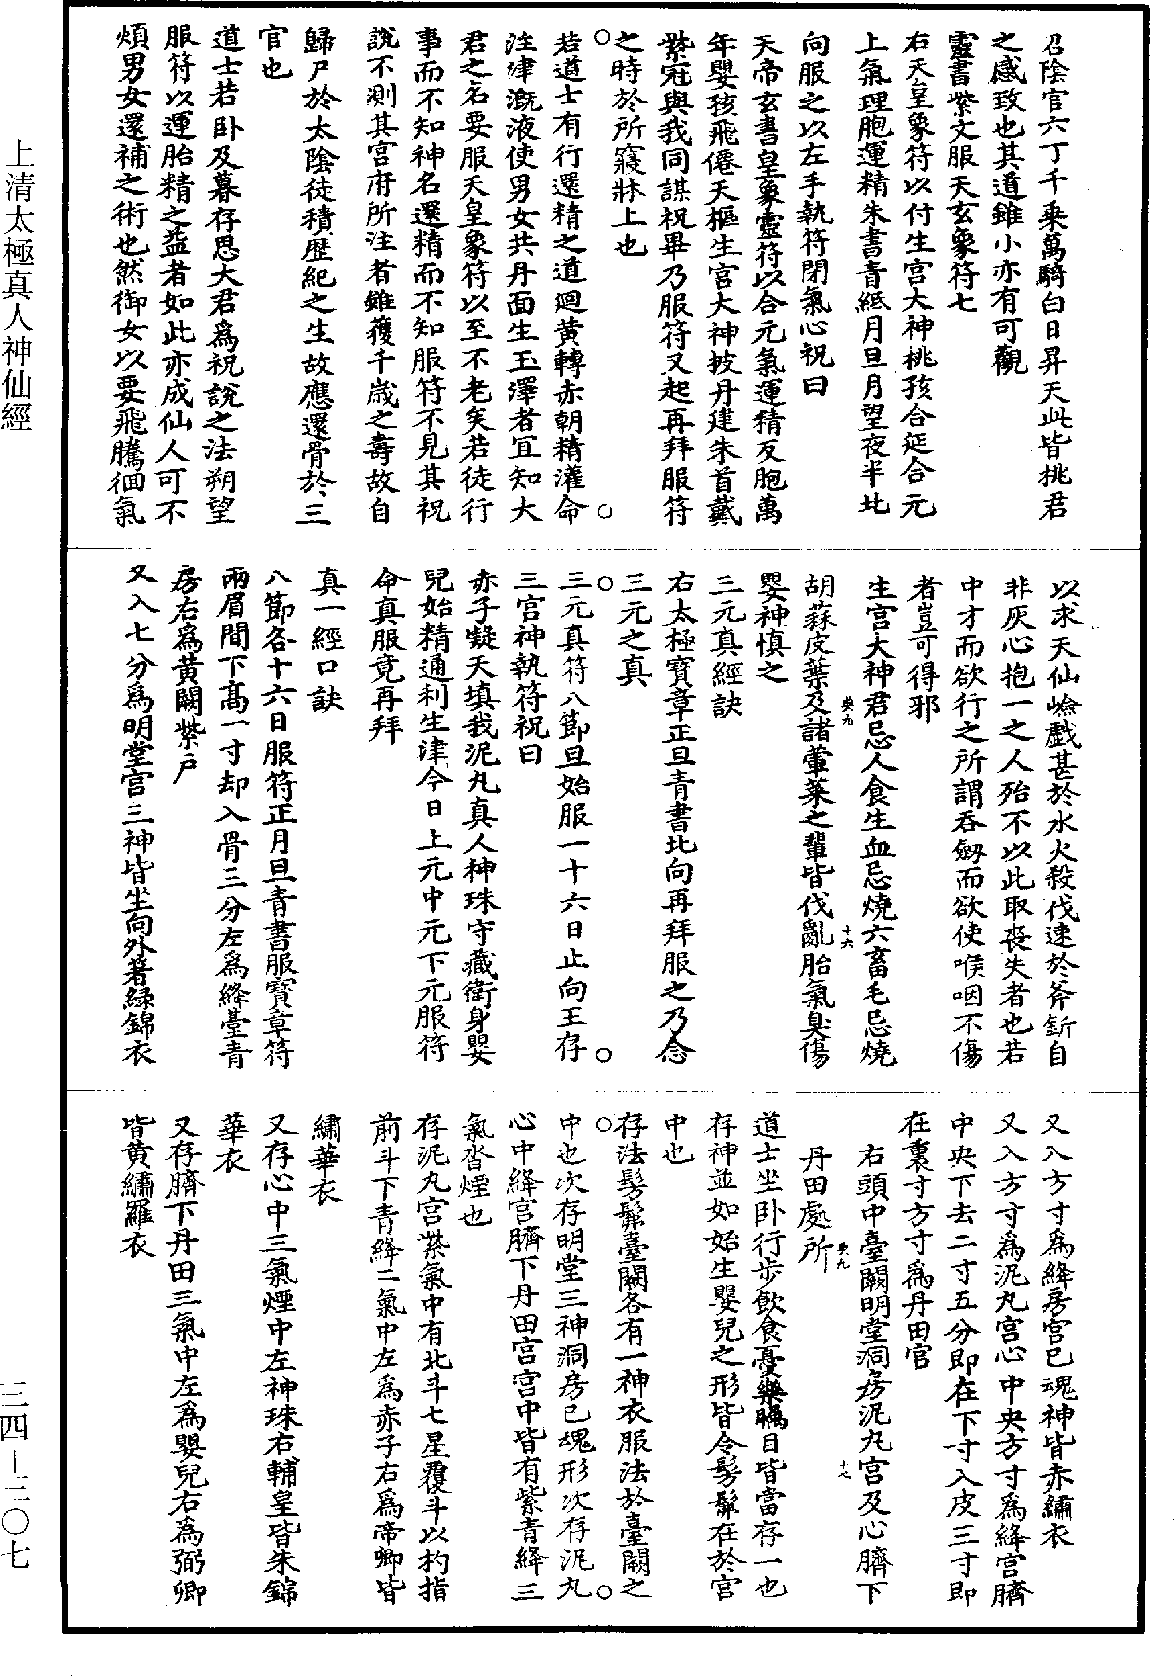 召陰官六丁千乘萬騎白日昇天此皆挑君
之感致也其道雖小亦有可觀
靈書紫文服天玄象符七
右天皇象符以付生宮大神桃孩合延合元
上氣理胞運精朱書青紙月旦月望夜半北
向服之以左手執符閉氣心祝曰
天帝玄書皇象靈符以合元氣運精反胞萬
年嬰孩飛僊天樞生宮大神披丹建朱首戴
紫冠與我同謀祝畢乃服符又起再拜服符
之時於所寢牀上也
若道士有行還精之道迴黃轉赤朝精灌命
注津溉液使男女共丹面生玉澤者宜知大
君之名要服天皇象符以至不老矣若徒行
事而不知神名還精而不知服符不見其祝
說不測其宮府所注者雖獲千歲之壽故自
歸尸於太陰徒積歷紀之生故應還骨於三
官也
道士若卧及暮存思大君爲祝說之法朔望
服符以運胎精之益者如此亦成仙人可不
煩男女還補之術也然御女以要飛騰徊氣
以求天仙嶮戲甚於水火殺伐速於斧釿自
非灰心抱一之人殆不以此取喪失者也若
中才而欲行之所謂吞劒而欲使喉咽不傷
者豈可得邪
生宮大神君忌人食生血忌燒六畜毛忌燒
胡荾皮葉及諸葷菜之輩皆伐亂胎氣臭傷
嬰神慎之
三元真經訣
右太極寶章正旦青書北向再拜服之乃念
三元之真
三元真符八節旦始服一十六日止向王存
三宮神執符祝曰
赤子凝天填我泥丸真人神珠守藏衛身嬰
兒始精通利生津今日上元中元下元服符
命真服竟再拜
真一經口訣
八節各十六日服符正月旦青書服寶章符
兩眉間下髙一寸却入骨三分左爲絳臺青
房右爲黃闕紫戶
又入七分爲明堂宮三神皆坐向外著綠錦衣
又入方寸爲絳房宮已魂神皆赤繡衣
又入方寸爲泥丸宮心中央方寸爲絳宮臍
中央下去二寸五分即在下寸入皮三寸即
在裏寸方寸爲丹田官
右頭中臺闕明堂洞房泥丸宮及心臍下
丹田處所
道士坐卧行步飲食憂樂矚目皆當存一也
存神並如始生嬰兒之形皆令髣髴在於宮
中也
存法髣髴臺闕各有一神衣服法於臺闕之
中也次存明堂三神洞房已魂形次存泥丸
心中絳宮臍下丹田宮宮中皆有紫青絳三
氣沓煙也
存泥丸宮紫氣中有北斗七星覆斗以杓指
前斗下青絳二氣中左爲赤子右爲帝卿皆
繡華衣
又存心中三氣煙中左神珠右輔皇皆朱錦
華衣
又存臍下丹田三氣中左爲嬰兒右爲弼卿
皆黃繡羅衣
上清太極真人神仙經
三四－三〇七